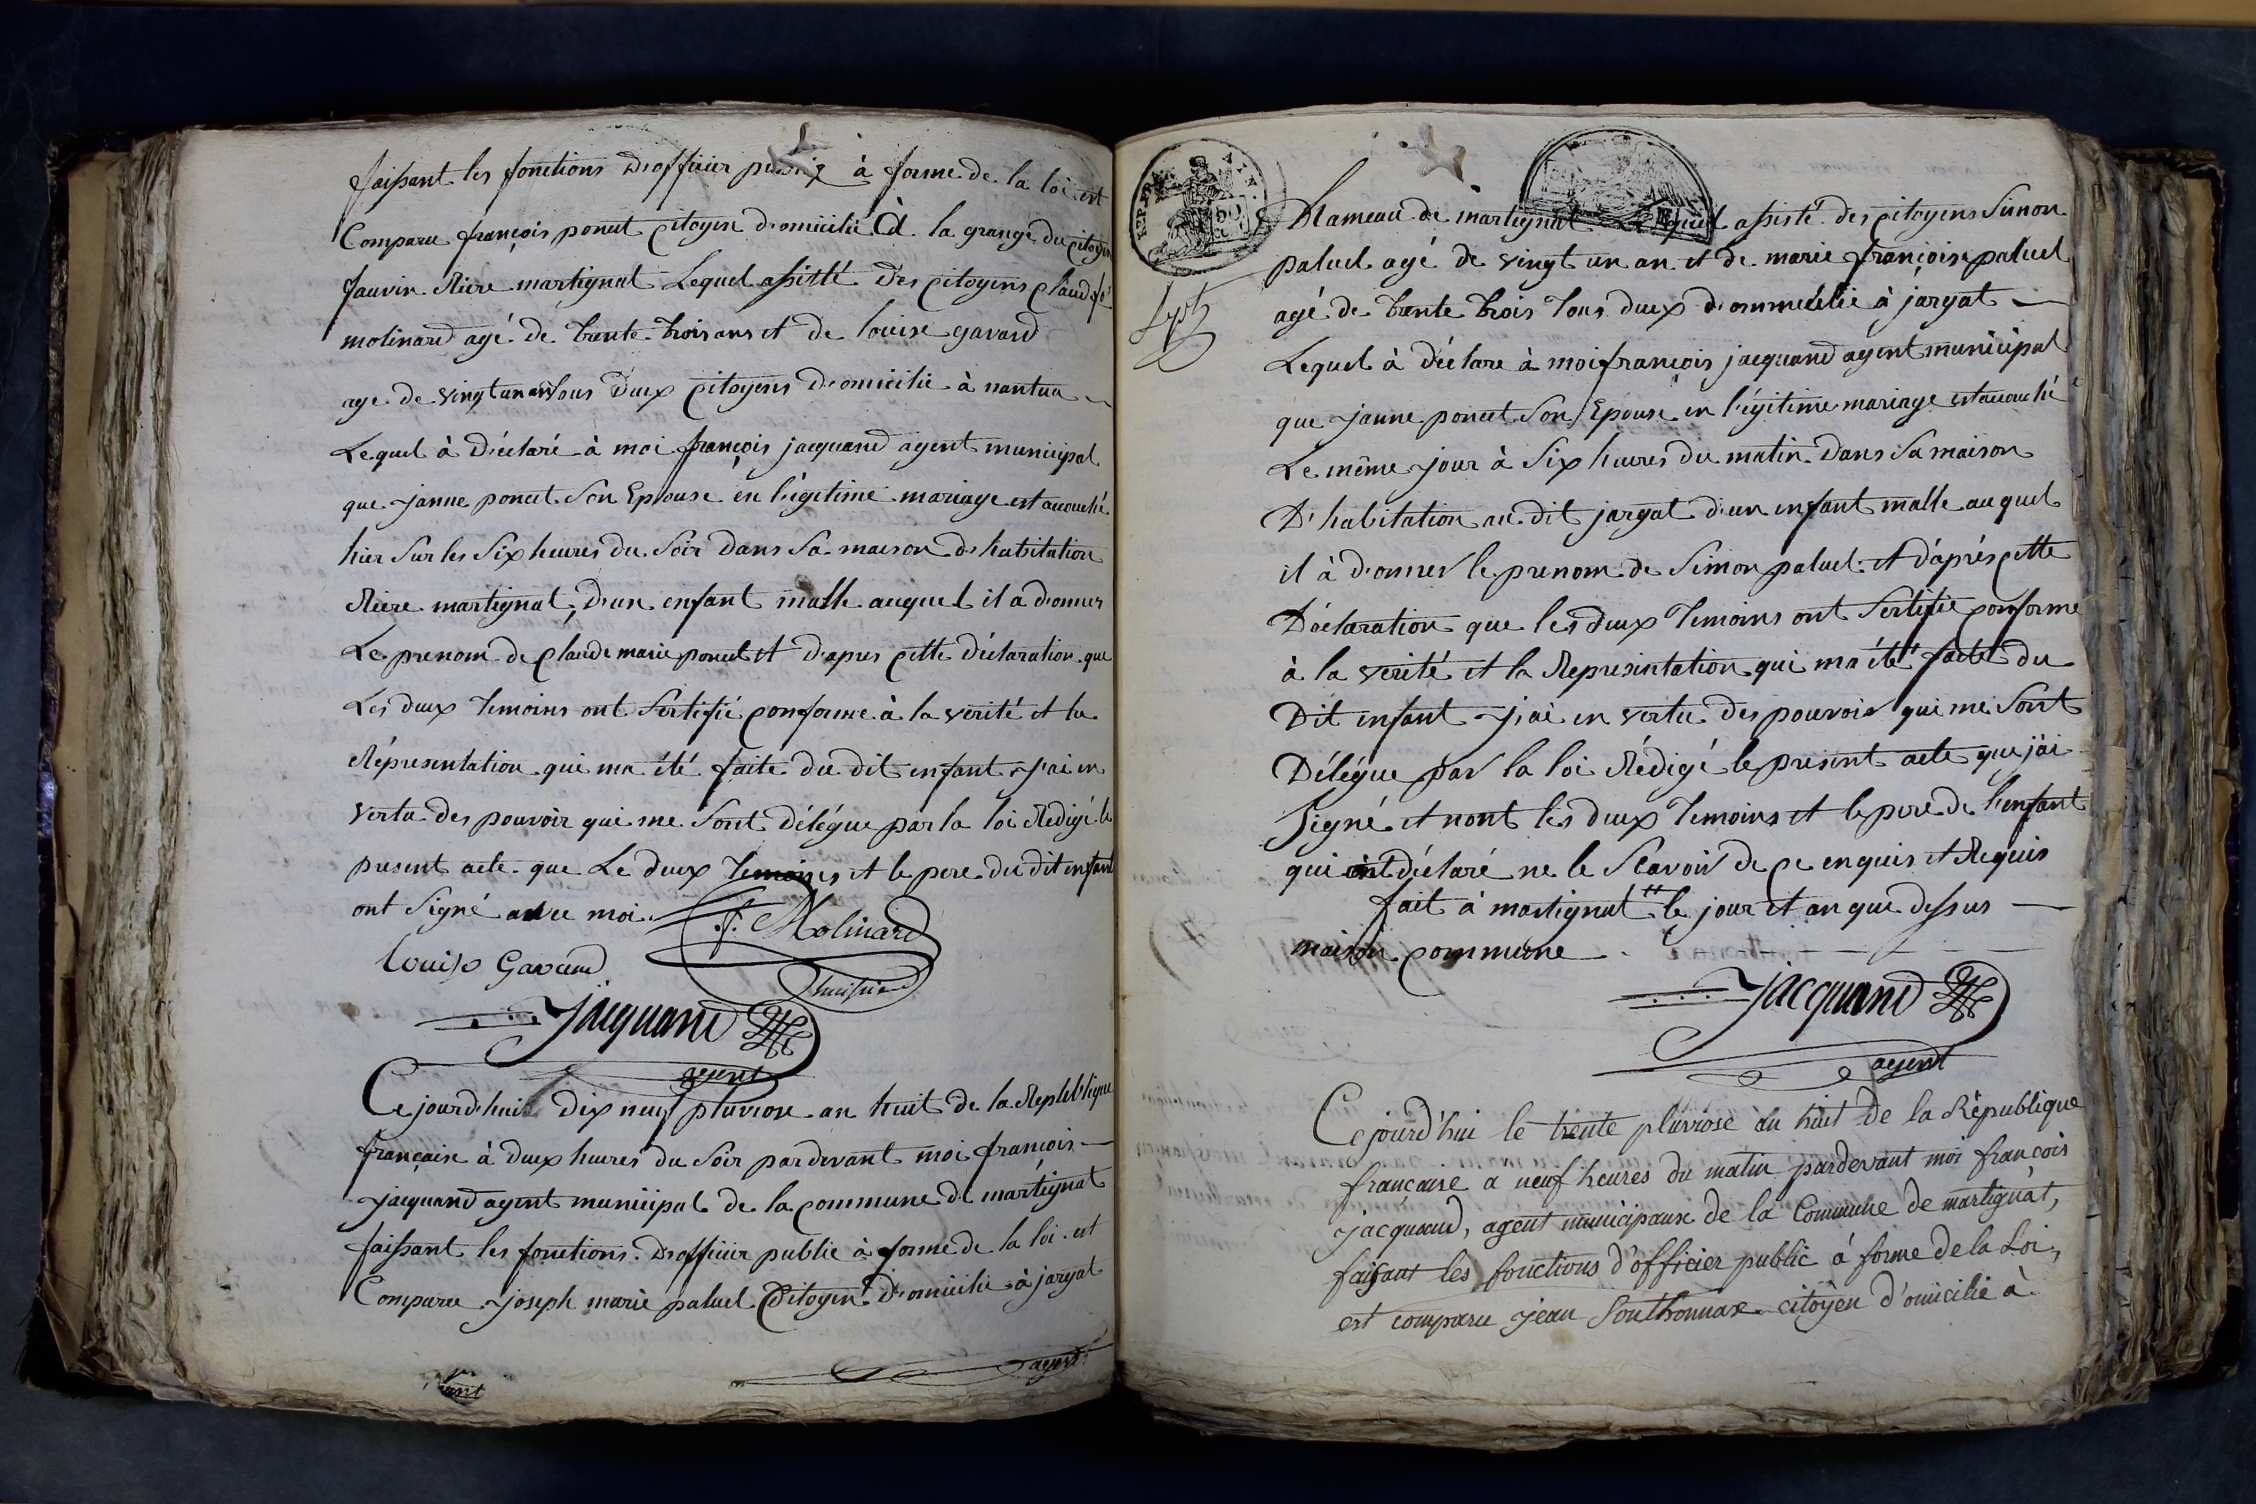 faissant les fonctions d'officier public à forme de la loi est
Comparu françois poncet citoyen domicilié à la grange du citoyen
jauvin Riere martignat Lequel assisté des citoyens claud f.s
molinard agé de trente trois ans et de louise gavard
age de vingt un an tous deux citoyens domicilié à nantua
Lequel à déclaré à moi françois jacquand agent municipal
que janne poncet son Epouse en légitime mariage est accouché
hier sur les six heures du soir dans sa maison d'habitation
Riere martignat, d'un enfant malle auquel il a donner
Le prenom de claude marie poncet et d'apres cette déclaration que
Les deux temoins ont sertifié conforme à la verité et la
Réprésentation qui ma été faite du dit enfant j'ai en
vertu des pouvoir qui me sont délégue par la loi Rédigé le
present acte que Le deux temoins et le pere du dit enfant
ont signé avec moi f. Molinard
louise Gavard
Jacquand
agent
Ce jourd'hui dix neuf pluviose an huit de la République
française à deux heures du soir pardevant moi françois
jacquand agent municipal de la commune de martignat
faissant les fonctions d'officier public à forme de la loi est
Comparu joseph marie paluel Citoyen domicilié à jargat
agent
hameau de martignat Lequel assisté des citoyens Simon
paluel agé de vingt un an et de marie françoise paluel
agé de trente trois tous deux dommicilié à jargat
Lequel à déclare à moi françois jacquand agent municipal
que janne poncet son Epouse en légitime mariage est accouché
Le même jour à six heures du matin dans sa maison
D'habitation au dit jargat d'un enfant malle auquel
il à donner le prenom de Simon paluel et d'aprés cette
Déclaration que les deux temoins ont sertifié conforme
à la verité et la Representation qui ma été faite du
Dit enfant j'ai en vertu des pouvoir qui me sont
Délégue par la loi Rédigé le présent acte que j'ai
Signé et nont les deux temoins et le pere de l'enfant
qui ont déclaré ne le scavoir de ce enquis et Requis
fait à martignat le jour et an que dessus
maison commune
Jacquand
agent
Ce jourd'hui le trente pluviose an huit de la République
française a neuf heures du matin pardevant moi françois
jacquand, agent municipaux de la Commune de martignat,
faisant les fonctions d'officier public á forme de la Loi,
est comparu jean Southonnax citoyen d'omicilié à